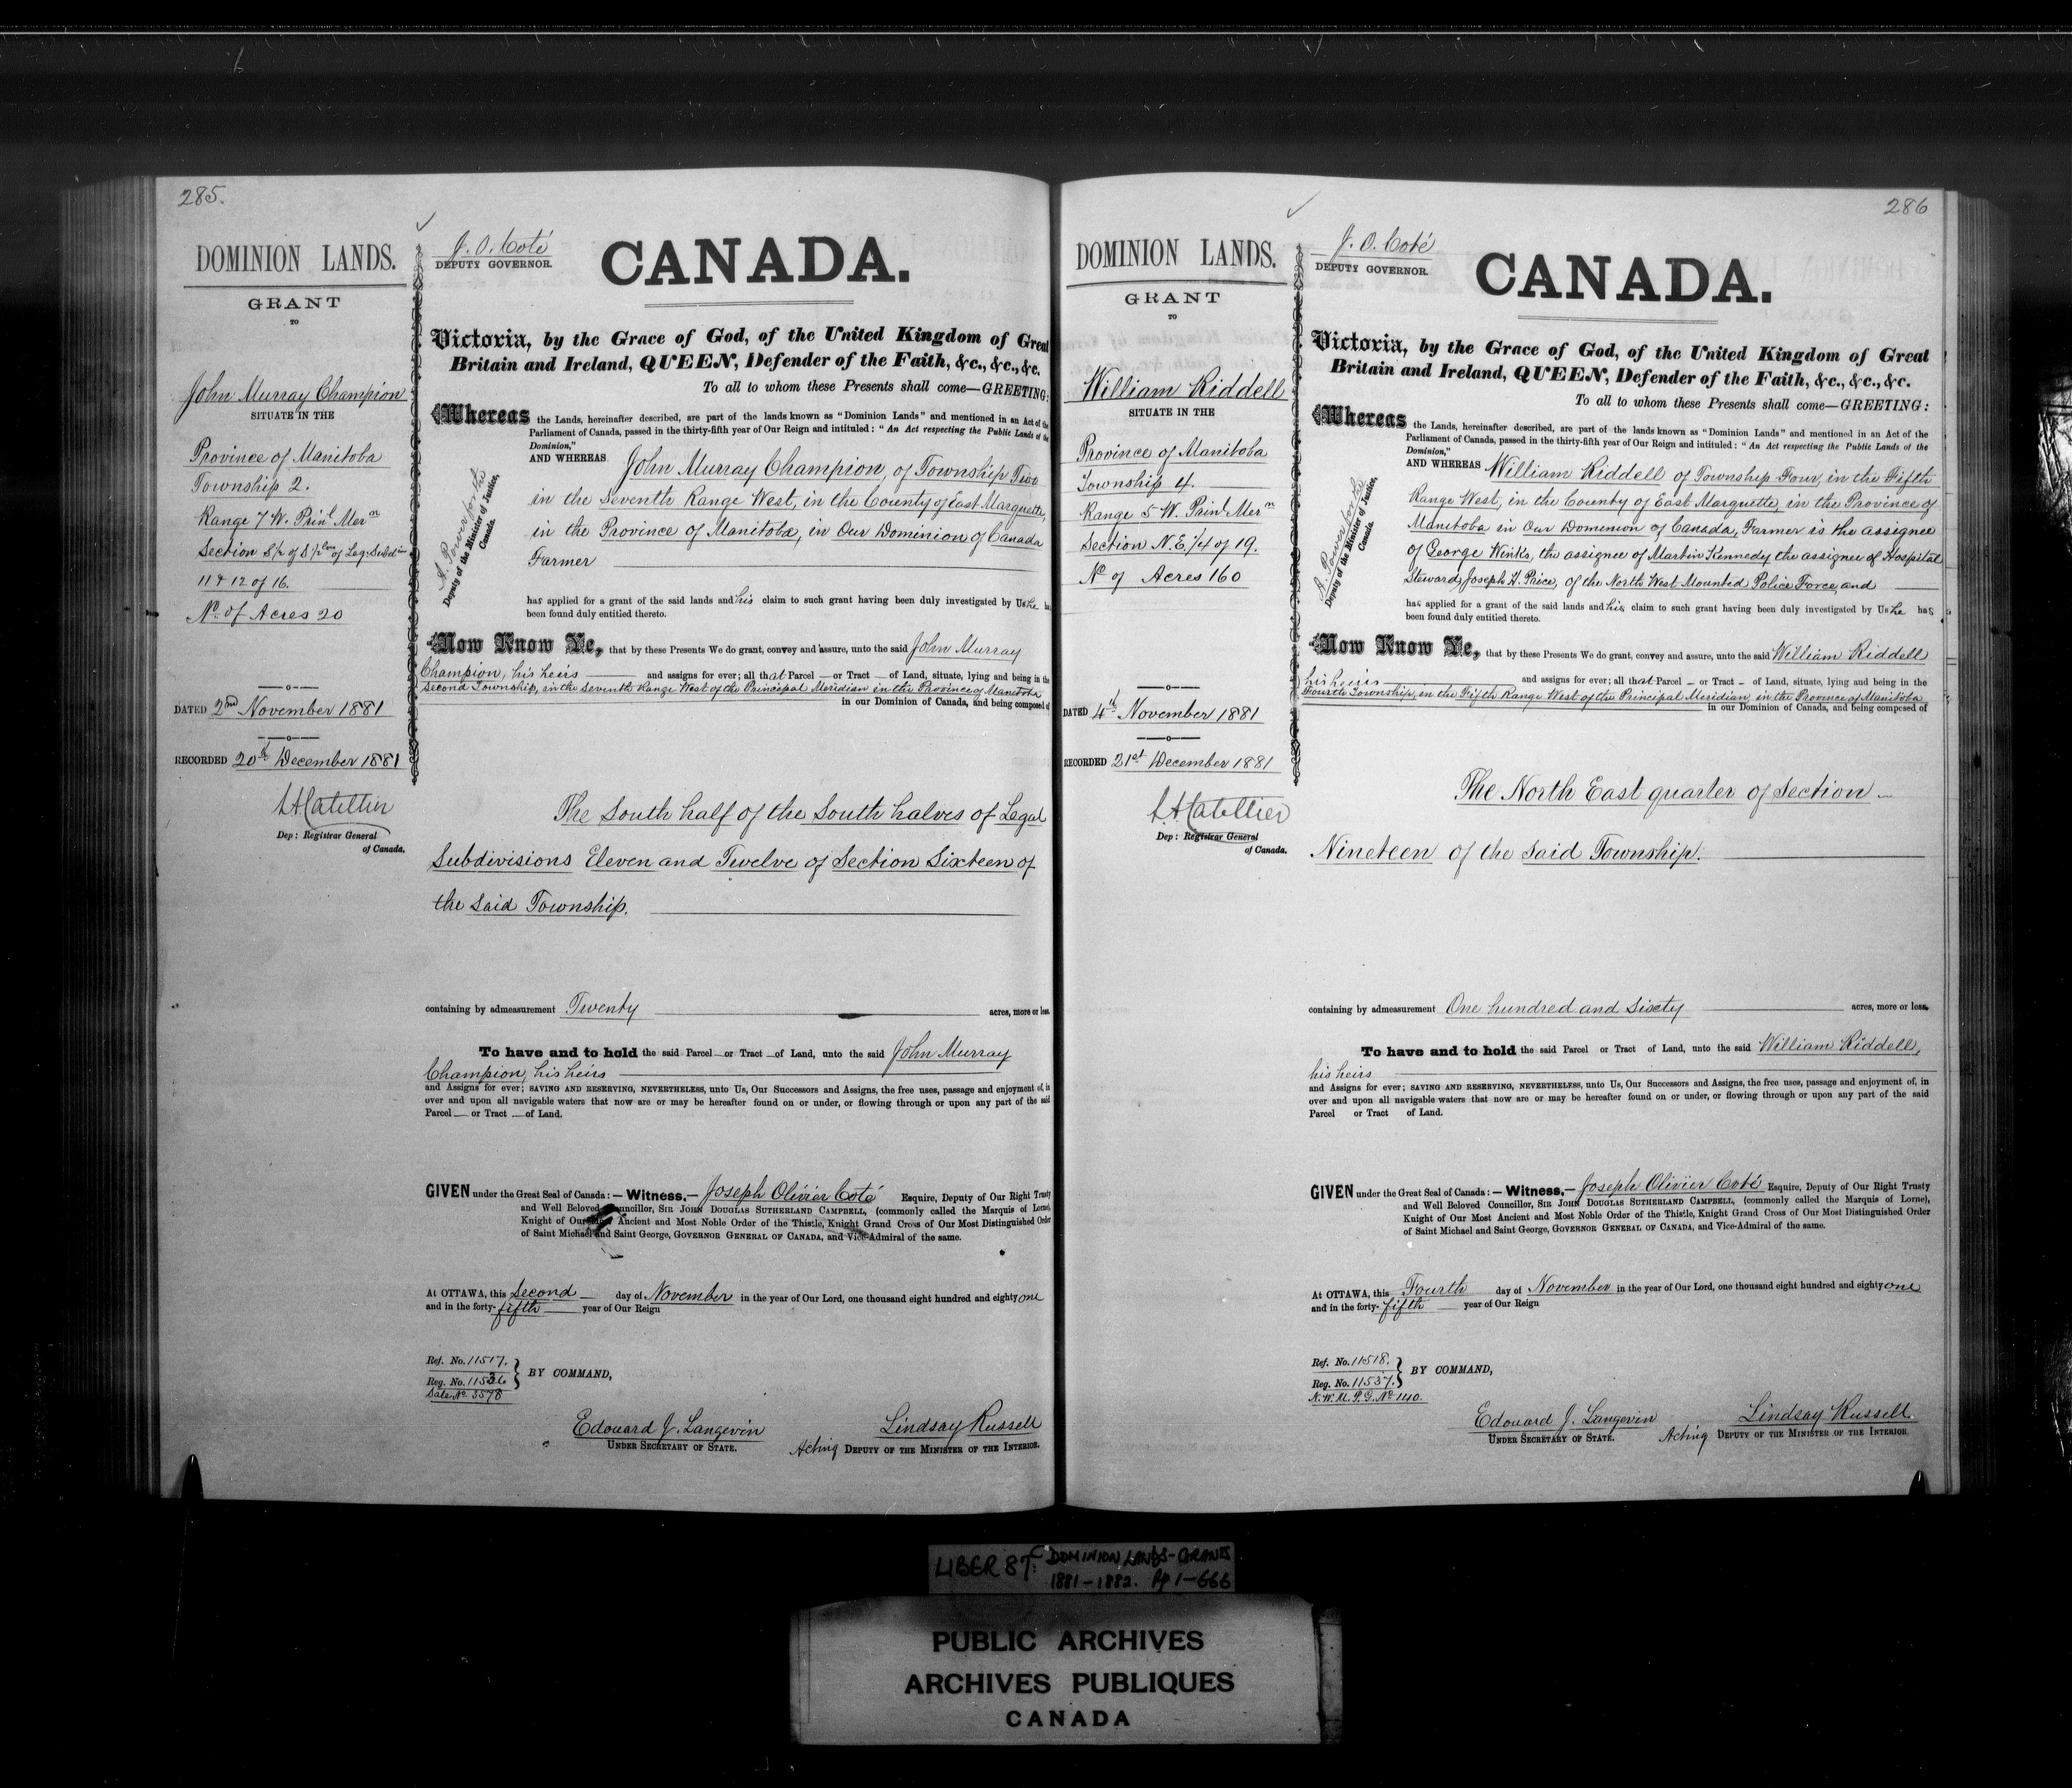 285.
DOMINION LANDS.
GRANT
TO
John Murray Champion
SITUATE IN THE
Province of Manitoba
Township 2.
Range 7 W. Prinl Mern
Section S½ of S½ of Leg: Subdins
11 & 12 of 16.
No. of Acres 20
DATED 2nd November 1881
RECORDED 20th December 1881
Dep: Registrar General
of Canada.
J. O. Coté
DEPUTY GOVERNOR.
CANADA.
Victoria, by the Grace of God, of the United Kingdom of Great
Britain and Ireland, QUEEN, Defender of the Faith, &c., &c., &c.
To all to whom these Presents shall come—GREETING:
Whereas the Lands, hereinafter described, are part of the lands known as "Dominion Lands" and mentioned in an Act of the
Parliament of Canada, passed in the thirty-fifth year of Our Reign and intituled: "An Act respecting the Public Lands of the
Dominion,"
AND WHEREAS John Murray Champion, of Township Two
in the Seventh Range West, in the County of East Marquette,
in the Province of Manitoba, in Our Dominion of Canada
Farmer
A. Power for the
Deputy of the Minister of Justice,
Canada.
has applied for a grant of the said lands and his claim to such grant having been duly investigated by Us he has
been found duly entitled thereto.
Now Know Ye, that by these Presents We do grant, convey and assure, unto the said John Murray
Champion, his heirs and assigns for ever; all that Parcel — or Tract — of Land, situate, lying and being in the
Second Township, in the Seventh Range West of the Principal Meridian in the Province of Manitoba
in our Dominion of Canada, and being composed of
The South half of the South halves of Legal
Subdivisions Eleven and Twelve of Section Sixteen of
the said Township.
containing by admeasurement Twenty acres, more or less.
To have and to hold the said Parcel — or Tract — of Land, unto the said John Murray
Champion, his heirs
and Assigns for ever; SAVING AND RESERVING, NEVERTHELESS, unto Us, Our Successors and Assigns, the free uses, passage and enjoyment of, in
over and upon all navigable waters that now are or may be hereafter found on or under, or flowing through or upon any part of the said
Parcel — or Tract — of Land.
GIVEN under the Great Seal of Canada:—Witness,—Joseph Olivier Coté Esquire, Deputy of Our Right Trusty
and Well Beloved Councillor, SIR JOHN DOUGLAS SUTHERLAND CAMPBELL, (commonly called the Marquis of Lorne),
Knight of Our Most Ancient and Most Noble Order of the Thistle, Knight Grand Cross of Our Most Distinguished Order
of Saint Michael and Saint George, GOVERNOR GENERAL OF CANADA, and Vice-Admiral of the same.
At OTTAWA, this Second day of November in the year of Our Lord, one thousand eight hundred and eighty one
and in the forty-fifth year of Our Reign
Ref. No. 11517.
Reg. No. 11536
Sale No. 3578
BY COMMAND,
Edouard J. Langevin
UNDER SECRETARY OF STATE.
Lindsay Russell
Acting DEPUTY OF THE MINISTER OF THE INTERIOR.
286
DOMINION LANDS.
GRANT
TO
William Riddell
SITUATE IN THE
Province of Manitoba
Township 4.
Range 5 W. Prinl Mern
Section N.E. ¼ of 19.
No of Acres 160
DATED 4th November 1881
RECORDED 21st December 1881
Dep: Registrar General
of Canada.
J. O. Coté
DEPUTY GOVERNOR.
CANADA.
Victoria, by the Grace of God, of the United Kingdom of Great
Britain and Ireland, QUEEN, Defender of the Faith, &c., &c., &c.
To all to whom these Presents shall come—GREETING:
Whereas the Lands, hereinafter described, are part of the lands known as "Dominion Lands" and mentioned in an Act of the
Parliament of Canada, passed in the thirty-fifth year of Our Reign and intituled: "An Act respecting the Public Lands of the
Dominion,"
AND WHEREAS William Riddell of Township Four, in the Fifth
Range West, in the County of East Marquette, in the Province of
Manitoba in Our Dominion of Canada, Farmer is the assignee
of George Winks, the assignee of Martin Kennedy the assignee of Hospital
Steward, Joseph H. Price, of the North West Mounted Police Force, and
A. Power for the
Deputy of the Minister of Justice,
Canada.
has applied for a grant of the said lands and his claim to such grant having been duly investigated by Us he has
been found duly entitled thereto.
Now Know Ye, that by these Presents We do grant, convey and assure, unto the said William Riddell
his heirs and assigns for ever; all that Parcel — or Tract — of Land, situate, lying and being in the
Fourth Township, in the Fifth Range West of the Principal Meridian, in the Province of Manitoba
in our Dominion of Canada, and being composed of
The North East quarter of Section
Nineteen of the said Township.
containing by admeasurement One hundred and Sixty acres, more or less.
To have and to hold the said Parcel or Tract of Land, unto the said William Riddell,
his heirs
and Assigns for ever; SAVING AND RESERVING, NEVERTHELESS, unto Us, Our Successors and Assigns, the free uses, passage and enjoyment of, in
over and upon all navigable waters that now are or may be hereafter found on or under, or flowing through or upon any part of the said
Parcel or Tract of Land.
GIVEN under the Great Seal of Canada:—Witness,—Joseph Olivier Coté Esquire, Deputy of Our Right Trusty
and Well Beloved Councillor, SIR JOHN DOUGLAS SUTHERLAND CAMPBELL, (commonly called the Marquis of Lorne),
Knight of Our Most Ancient and Most Noble Order of the Thistle, Knight Grand Cross of Our Most Distinguished Order
of Saint Michael and Saint George, GOVERNOR GENERAL OF CANADA, and Vice-Admiral of the same.
At OTTAWA, this Fourth day of November in the year of Our Lord, one thousand eight hundred and eighty one
and in the forty-fifth year of Our Reign
Ref. No. 11518.
Reg. No. 11537.
N.W.M.P.G. No 140.
BY COMMAND,
Edouard J. Langevin
UNDER SECRETARY OF STATE.
Lindsay Russell
Acting DEPUTY OF THE MINISTER OF THE INTERIOR.
LIBER 87C: DOMINION LANDS-GRANTS
1881-1882. Pp 1-666
PUBLIC ARCHIVES
ARCHIVES PUBLIQUES
CANADA